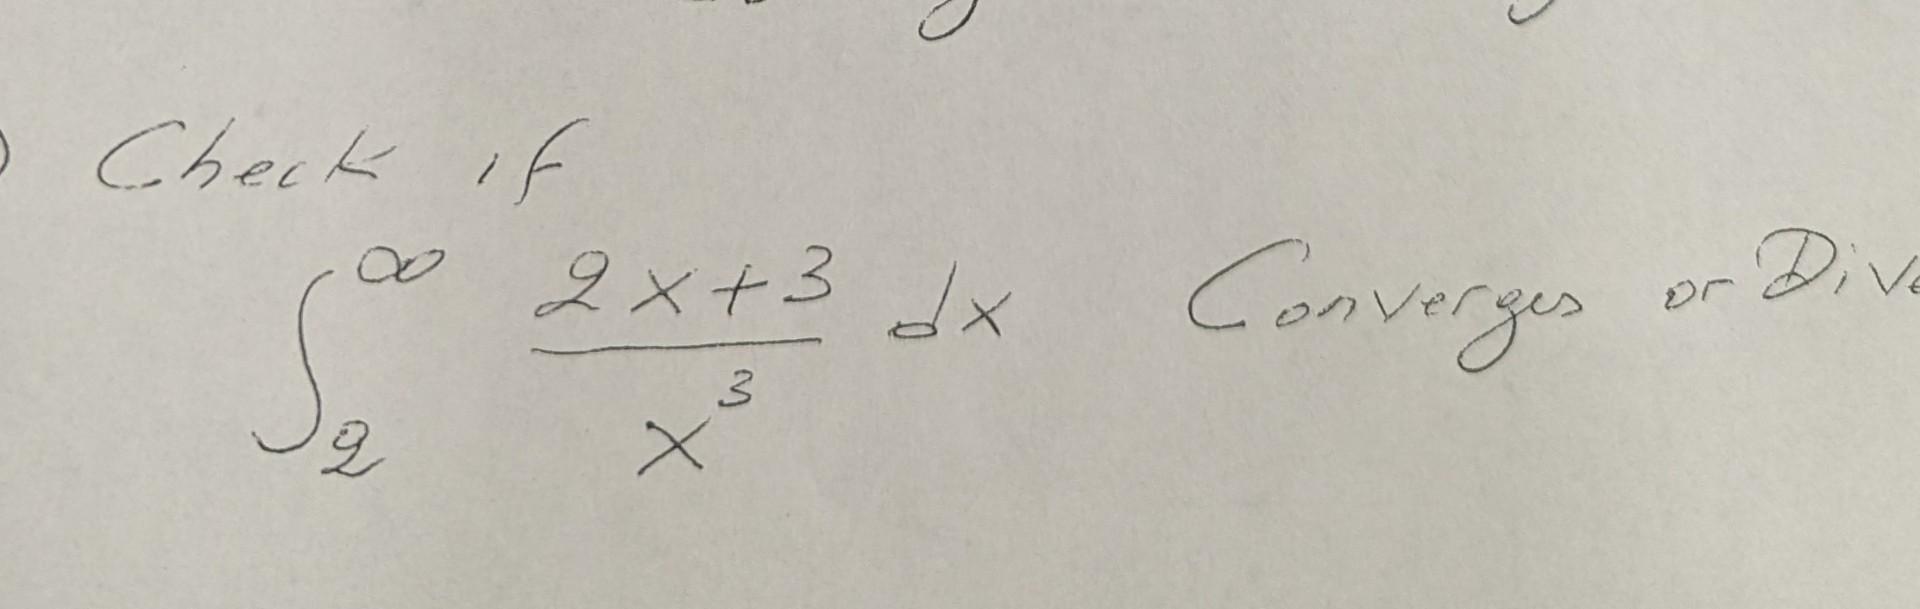 ) Check if
∫₂^∞ (2x+3)/x³ dx Converges or Dive